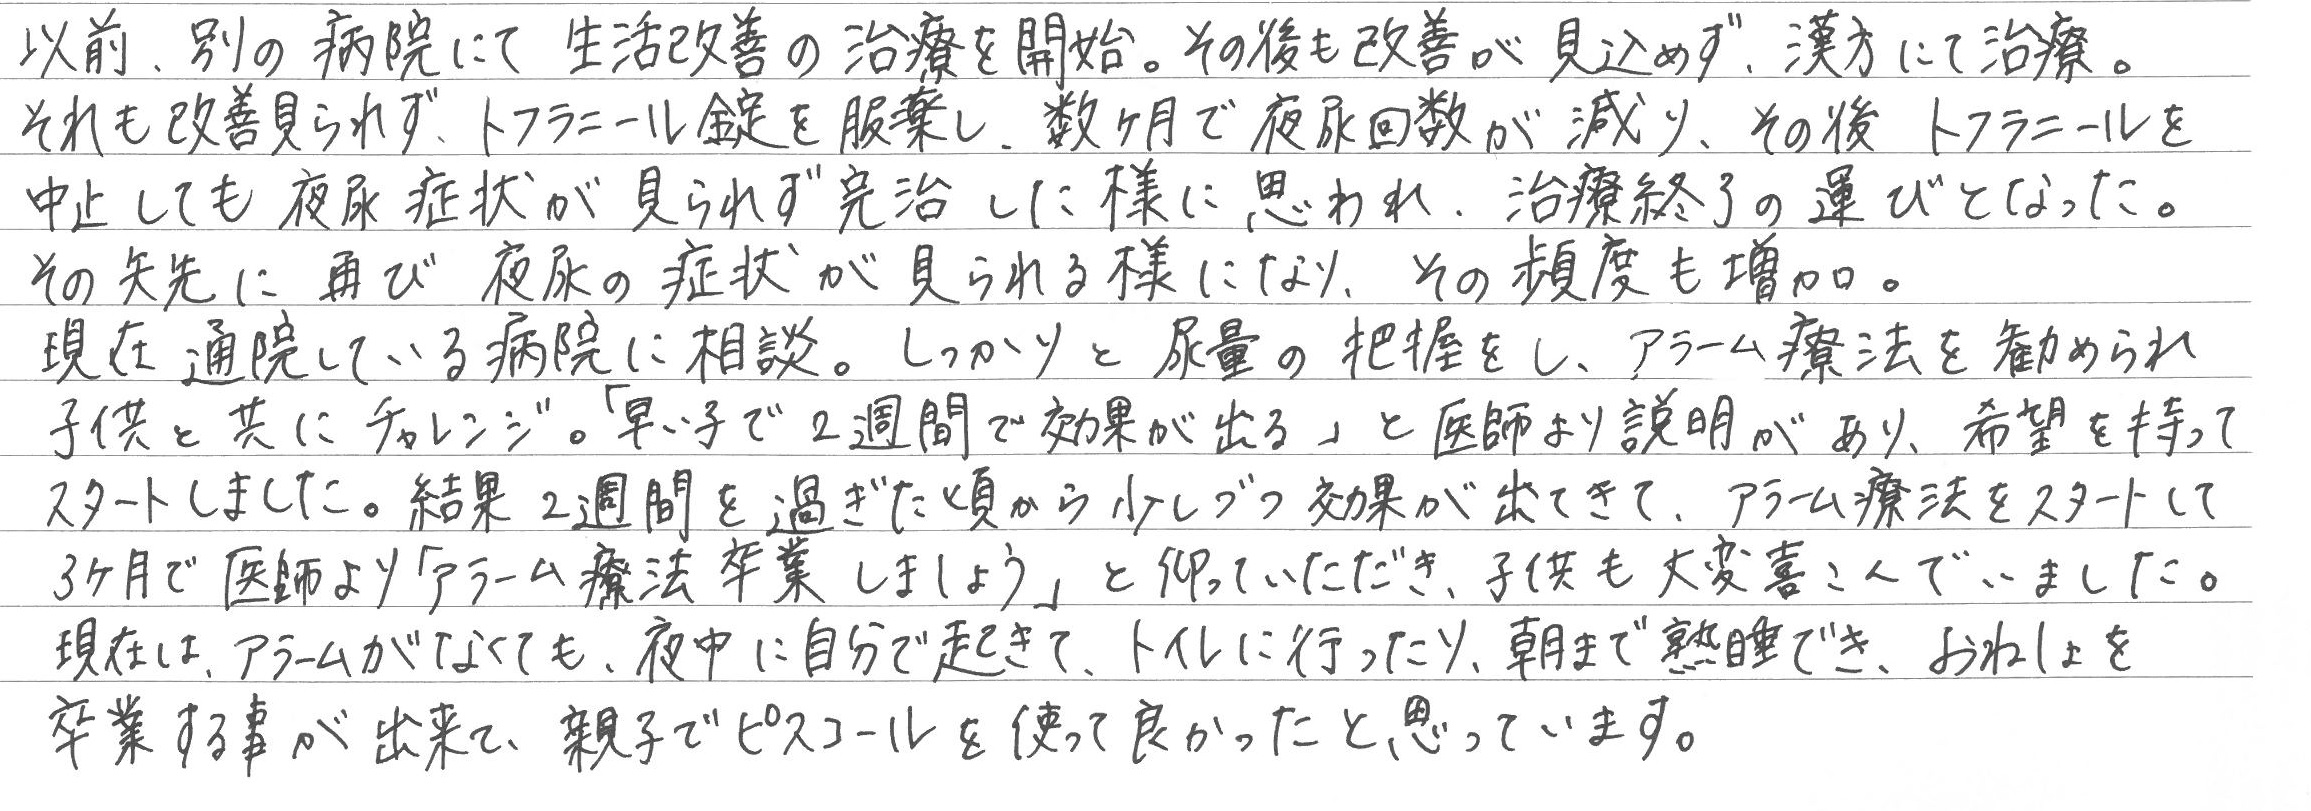 以前、別の病院にて生活改善の治療を開始。その後も改善が見込めず、漢方にて治療。
それも改善見られず、トフラニール錠を服薬し、数ヶ月で夜尿回数が減り、その後トフラニールを
中止しても夜尿症状が見られず完治した様に思われ、治療終了の運びとなった。
その矢先に再び夜尿の症状が見られる様になり、その頻度も増加。
現在通院している病院に相談。しっかりと尿量の把握をし、アラーム療法を勧められ
子供と共にチャレンジ。「早い子で2週間で効果が出る」と医師より説明があり、希望を持って
スタートしました。結果2週間を過ぎた頃から少しづつ効果が出てきて、アラーム療法をスタートして
3ヶ月で医師より「アラーム療法卒業しましょう」と仰っていただき、子供も大変喜こんでいました。
現在は、アラームがなくても、夜中に自分で起きて、トイレに行ったり、朝まで熟睡でき、おねしょを
卒業する事が出来て、親子でピスコールを使って良かったと思っています。